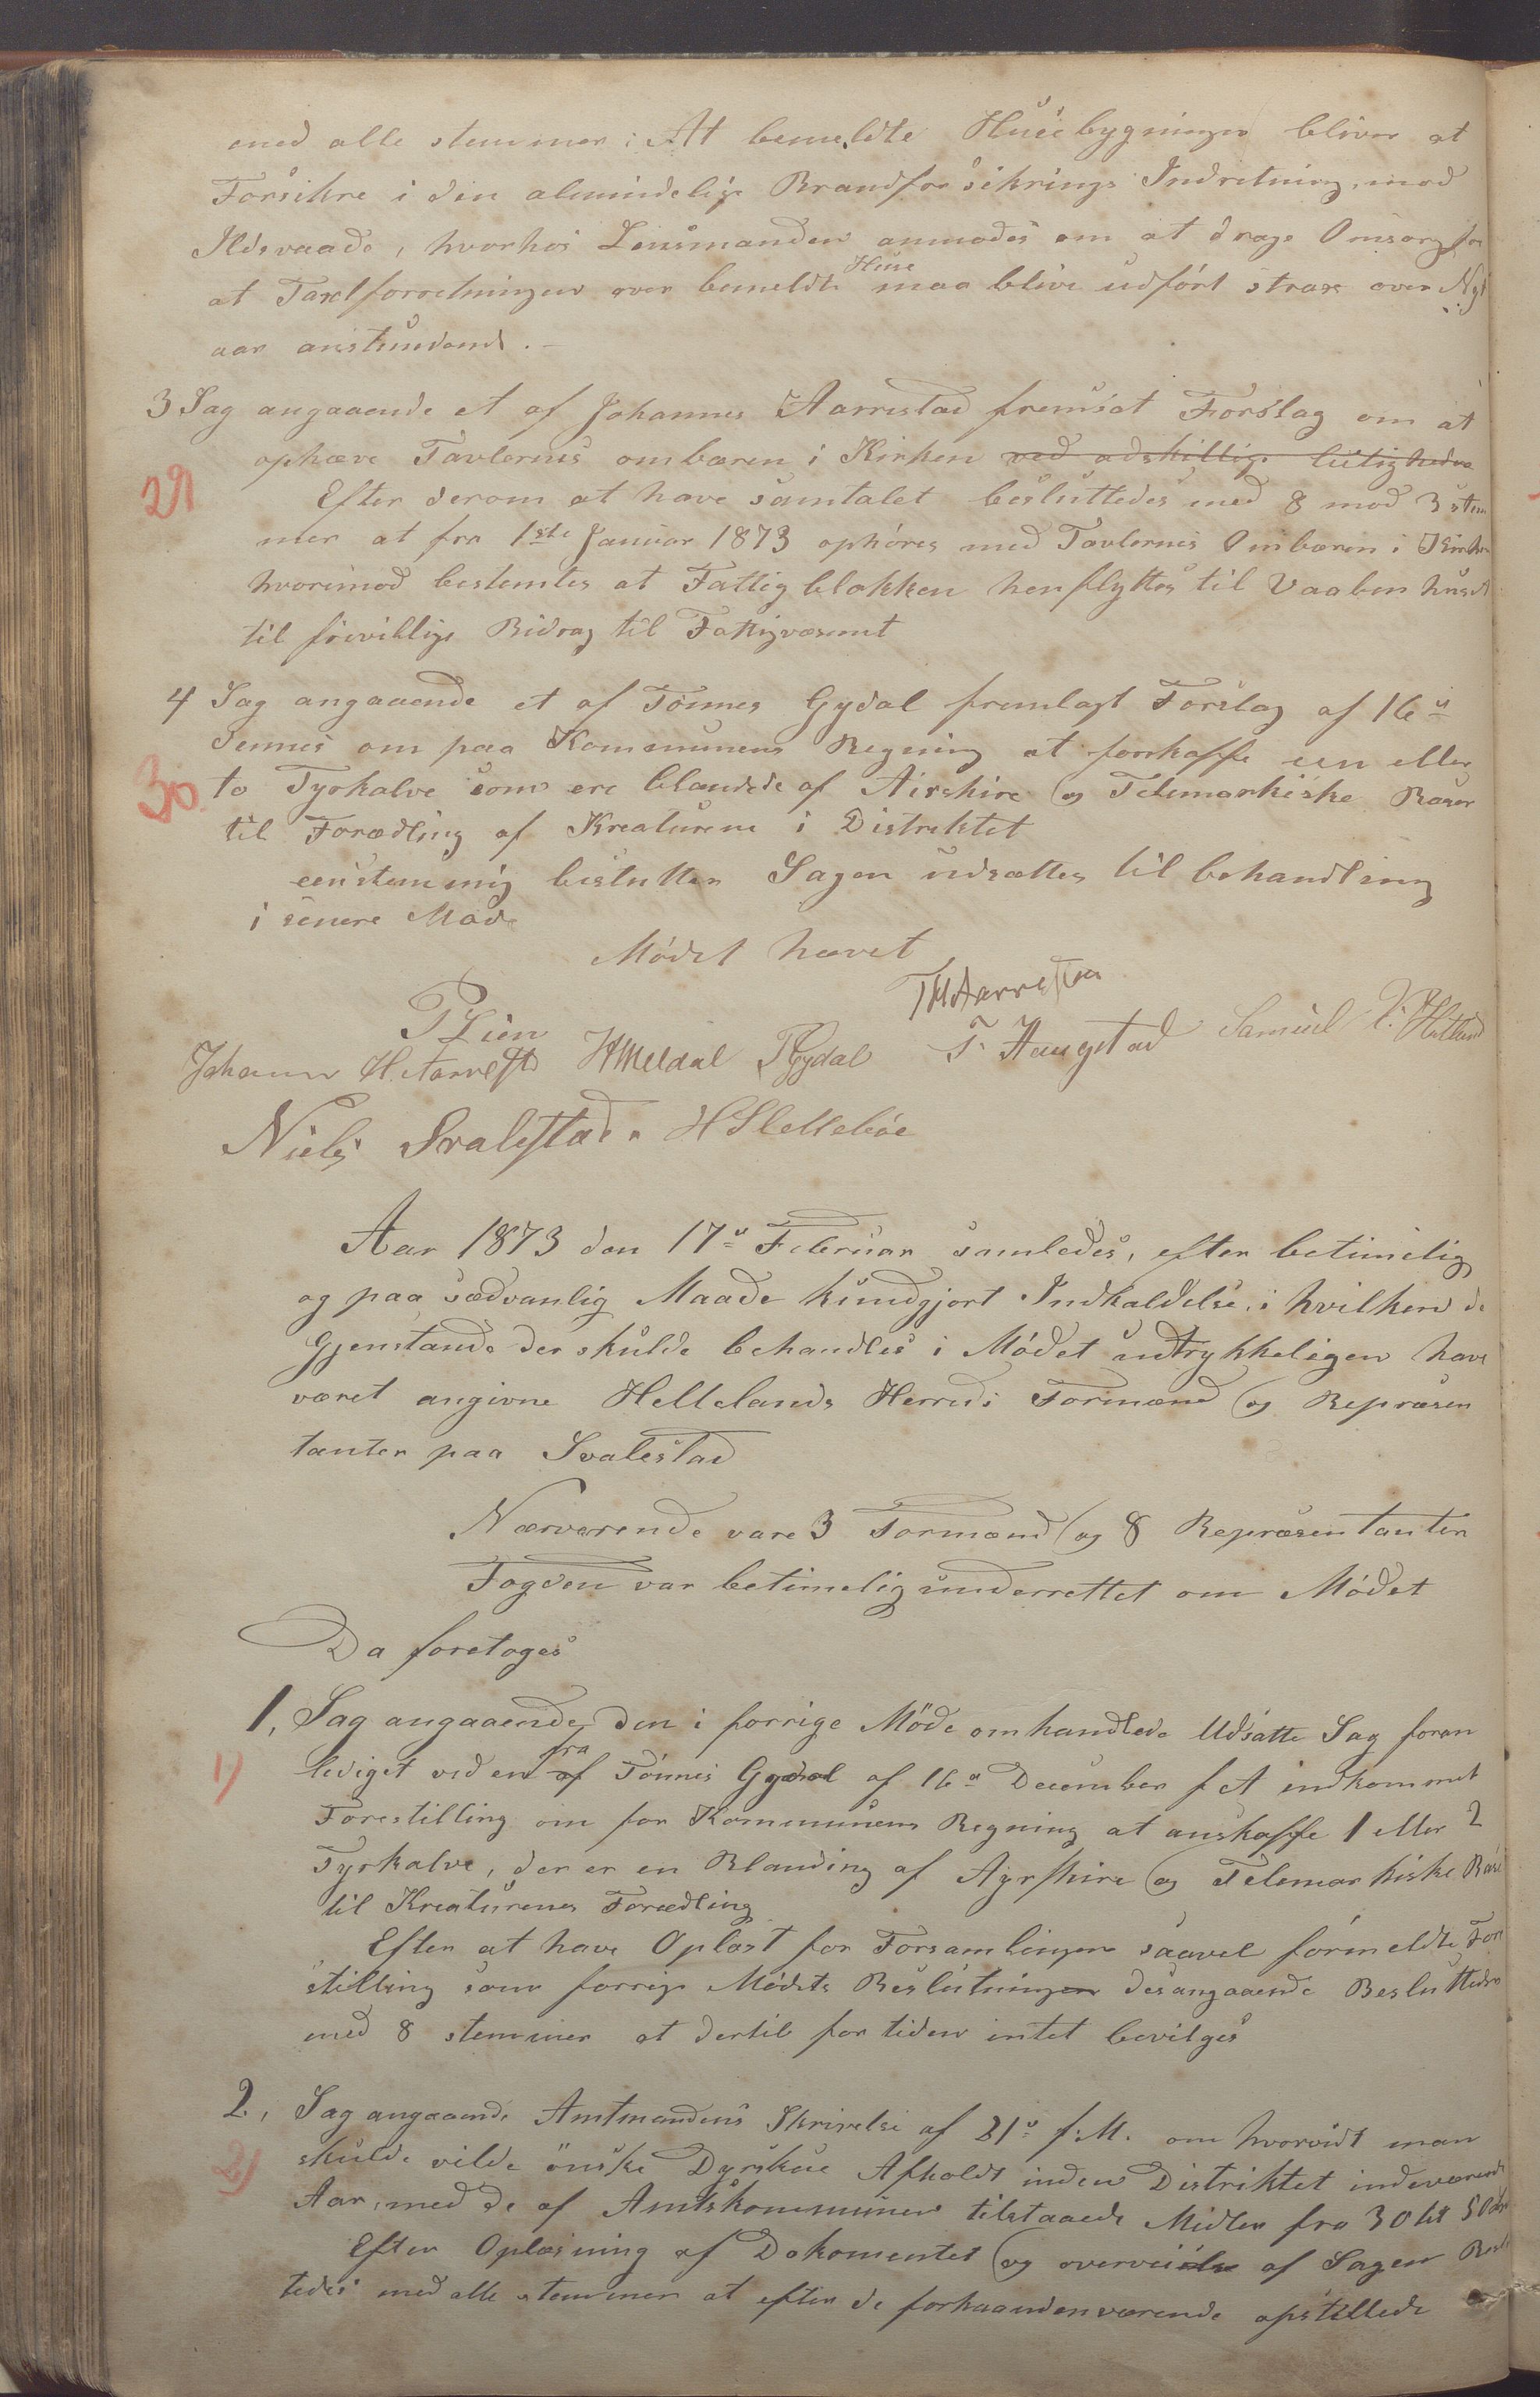 med alle stemmer: At bemeldte Huusbygninger bliver at
Forsikre i den almindelige Brandforsikrings Indretning, mod
Ildsvaade, hvorhos Lensmanden anmodes om at drage Omsorg for
at Taxtforretningen over bemeldte Huse maa blive udført strax over Nyt
aar anstundende.-
3 Sag angaaende et af Johannes Aarrestad fremsat Forslag om at
ophæve Tavlernes ombæren i Kirken ved adskillige
29
Efter derom at have samtalet besluttedes med 8 mod 3 stem
mer at fra 1ste Januar 1873 ophøres med Tavlernes Ombæren i Kirken
hvorimod bestemtes at Fattigblokken henflyttes til Vaabenhuset
til frivillige Bidrag til Fattigvæsenet
4 Sag angaaende et af Tønnes Gydal fremlagt Forslag af 16de
dennes om paa Kommunens Regning at forskaffe een eller
30 to Tyrkalve som ere blandede af Airshire og Telemarkiske Racer
til Forædling af Kreaturene i Distriktet
eenstemmig beslutter Sagen udsættes til behandling
i senere Møde
Mødet hævet
TH Aarrestad
P Lien
Johannes H. Aarrestad HMeldal TGydal T. Haugstad Samuel T. Hetland
Niels Svalestad. H Slettebøe
Aar 1873 den 17de Februar samledes, efter betimelig
og paa sædvanlig Maade kundgjort Indkaldelse, i hvilken de
Gjenstande der skulde behandles i Mødet udtrykkeligen have
været angivne Hellelands Herreds Formænd og Repræsen
tanter paa Svalestad
Nærværende vare 3 Formænd og 8 Repræsentanter
Fogden var betimelig underrettet om Mødet
Da foretoges
1, Sag angaaende den i forrige Møde omhandlede Udsatte Sag foran
1) lediget ved en af fra Tønnes Gydal af 16de December f A indkommet
Forestilling om for Kommunens Regning at anskaffe 1 eller 2
Tyrkalve, der er en Blanding af Ayrshire og Telemarkiske Race
til Kreaturenes Forædling
Efter at have Oplæst for Forsamlingen saavel formeldte Fore
stilling som forrige Mødets Beslutningen desangaaende Besluttedes
med 8 stemmer at dertil for tiden intet bevilges
2, Sag angaaende Amtmandens Skrivelse af 21de f.M. om hvorvidt man
2) skulde vilde ønske Dyrskue Afholdt inden Distriktet indeværende
Aar, med de af Amtskommunen tilstaaede Midler fra 30 til 50
Efter Oplæsning af Dokumentet og overveielse af Sagen Beslut
tedes med alle stemmer at efter de forhaandenværende opstillede